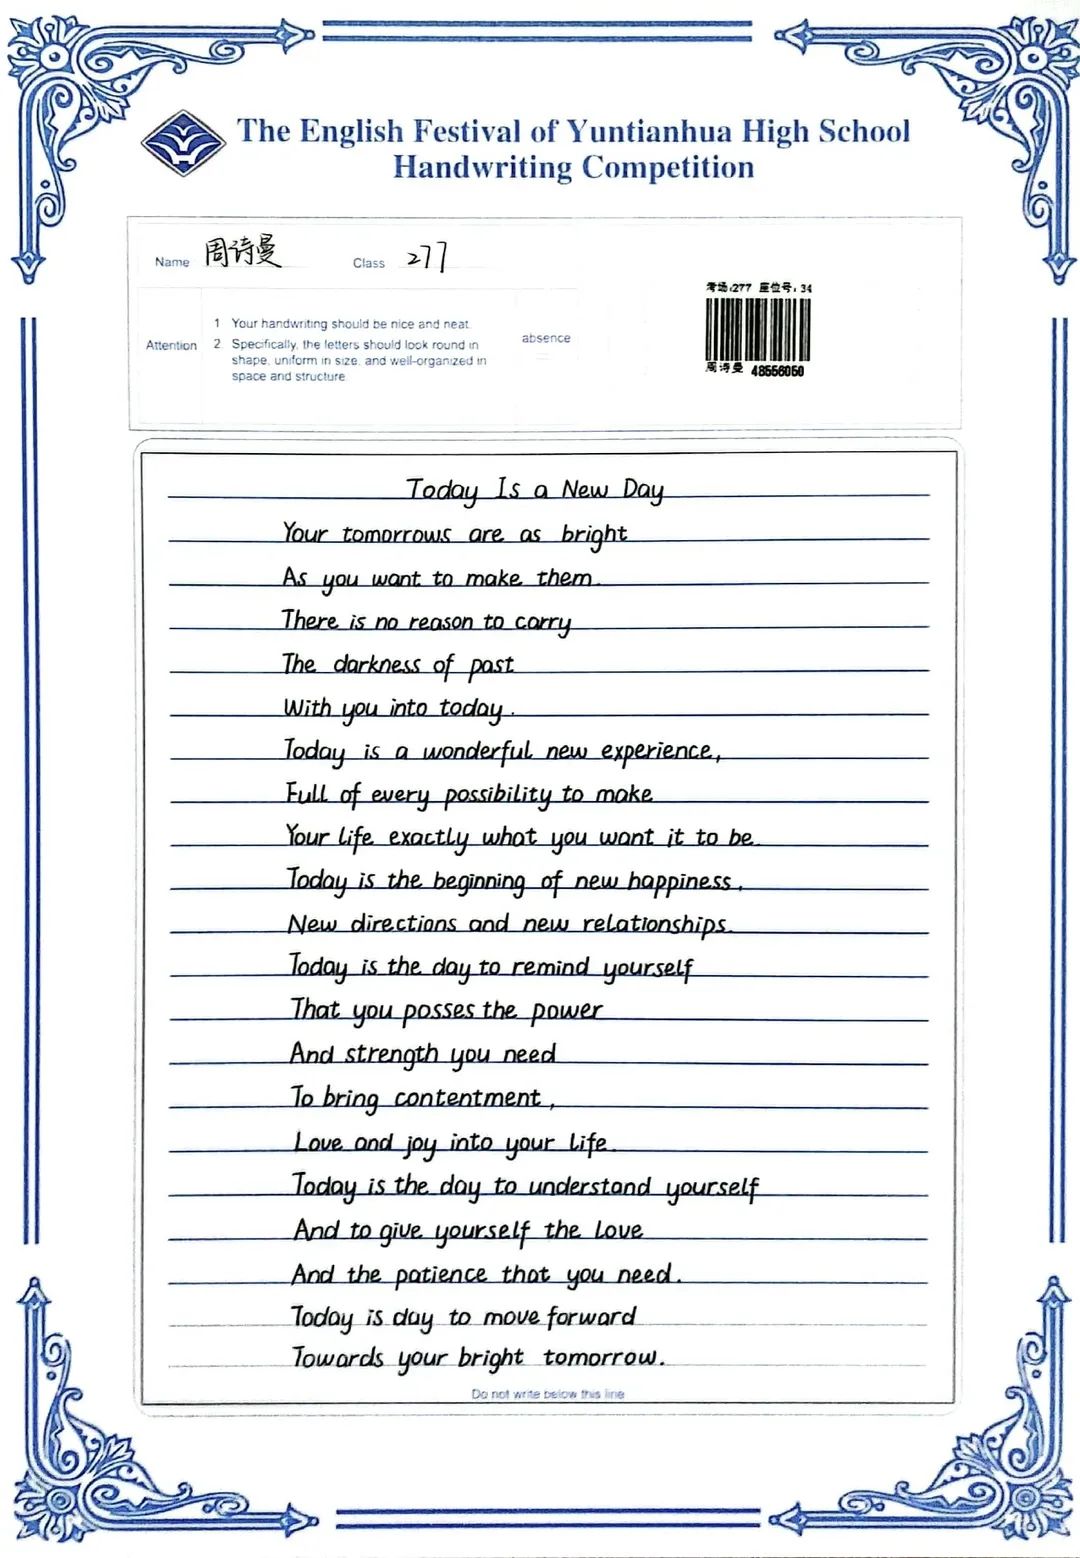 The English Festival of Yuntianhua High School
Handwriting Competition
Name 周诗曼 Class 277
考场:277 座位号:34
Attention
1 Your handwriting should be nice and neat.
2 Specifically, the letters should look round in
shape, uniform in size, and well-organized in
space and structure
absence
周诗曼 48556050
Today Is a New Day
Your tomorrows are as bright
As you want to make them.
There is no reason to carry
The darkness of past
With you into today.
Today is a wonderful new experience,
Full of every possibility to make
Your life exactly what you want it to be.
Today is the beginning of new happiness,
New directions and new relationships.
Today is the day to remind yourself
That you posses the power
And strength you need
To bring contentment,
Love and joy into your life.
Today is the day to understand yourself
And to give yourself the love
And the patience that you need.
Today is day to move forward
Towards your bright tomorrow.
Do not write below this line